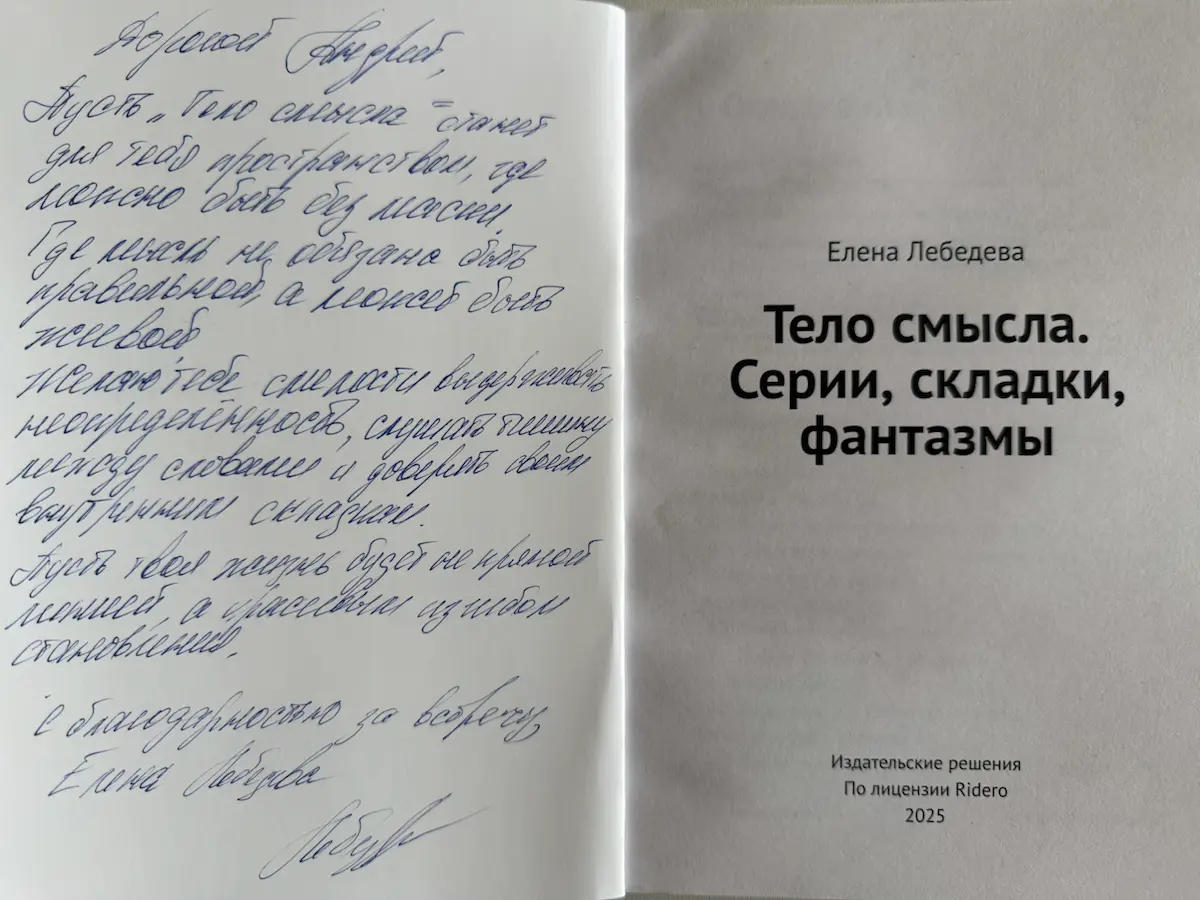 Дорогой Андрей,
Пусть „Тело смысла" станет
для тебя пространством, где
можно быть без маски.
Где мысль не обязана быть
правильной, а может быть
живой.
Желаю тебе смелости выдерживать
неопределённость, слушать тишину
между словами и доверять своим
внутренним складкам.
Пусть твоя жизнь будет не прямой
линией, а красивым изгибом
становления.
С благодарностью за встречу
Елена Лебедева
Елена Лебедева
Тело смысла.
Серии, складки,
фантазмы
Издательские решения
По лицензии Ridero
2025